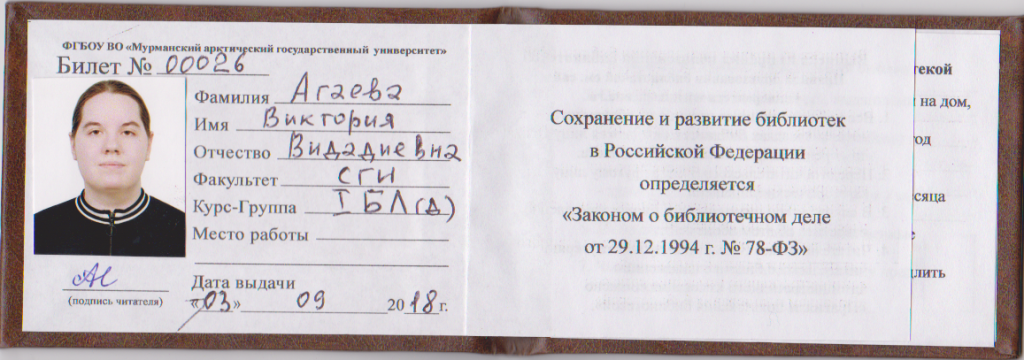 ФГБОУ ВО «Мурманский арктический государственный университет»
Билет № 00026
Фамилия Агаева
Имя Виктория
Отчество Видадиевна
Факультет СГИ
Курс-Группа I БЛ(д)
Место работы
(подпись читателя)
Дата выдачи
«03» 09 2018г.
Сохранение и развитие библиотек
в Российской Федерации
определяется
«Законом о библиотечном деле
от 29.12.1994 г. № 78-ФЗ»
текой
на дом,
год
сяца
лить